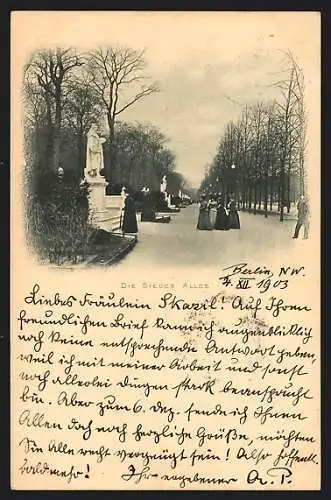 Die Sieges Allee
Berlin, N.W.
4. XII 1903
Liebes Fräulein Skazil! Auf Ihren
freundlichen Brief kann ich augenblicklich
noch keine entsprechende Antwort geben,
weil ich mit meiner Arbeit und sonst
noch allerlei Dingen stark beansprucht
bin. Aber zum 6. Dez. sende ich Ihnen
Allen doch noch herzliche Grüße, möchten
Sie Alle recht vergnügt sein! Also hoffentl.
bald mehr! Ihr ergebener A. P.